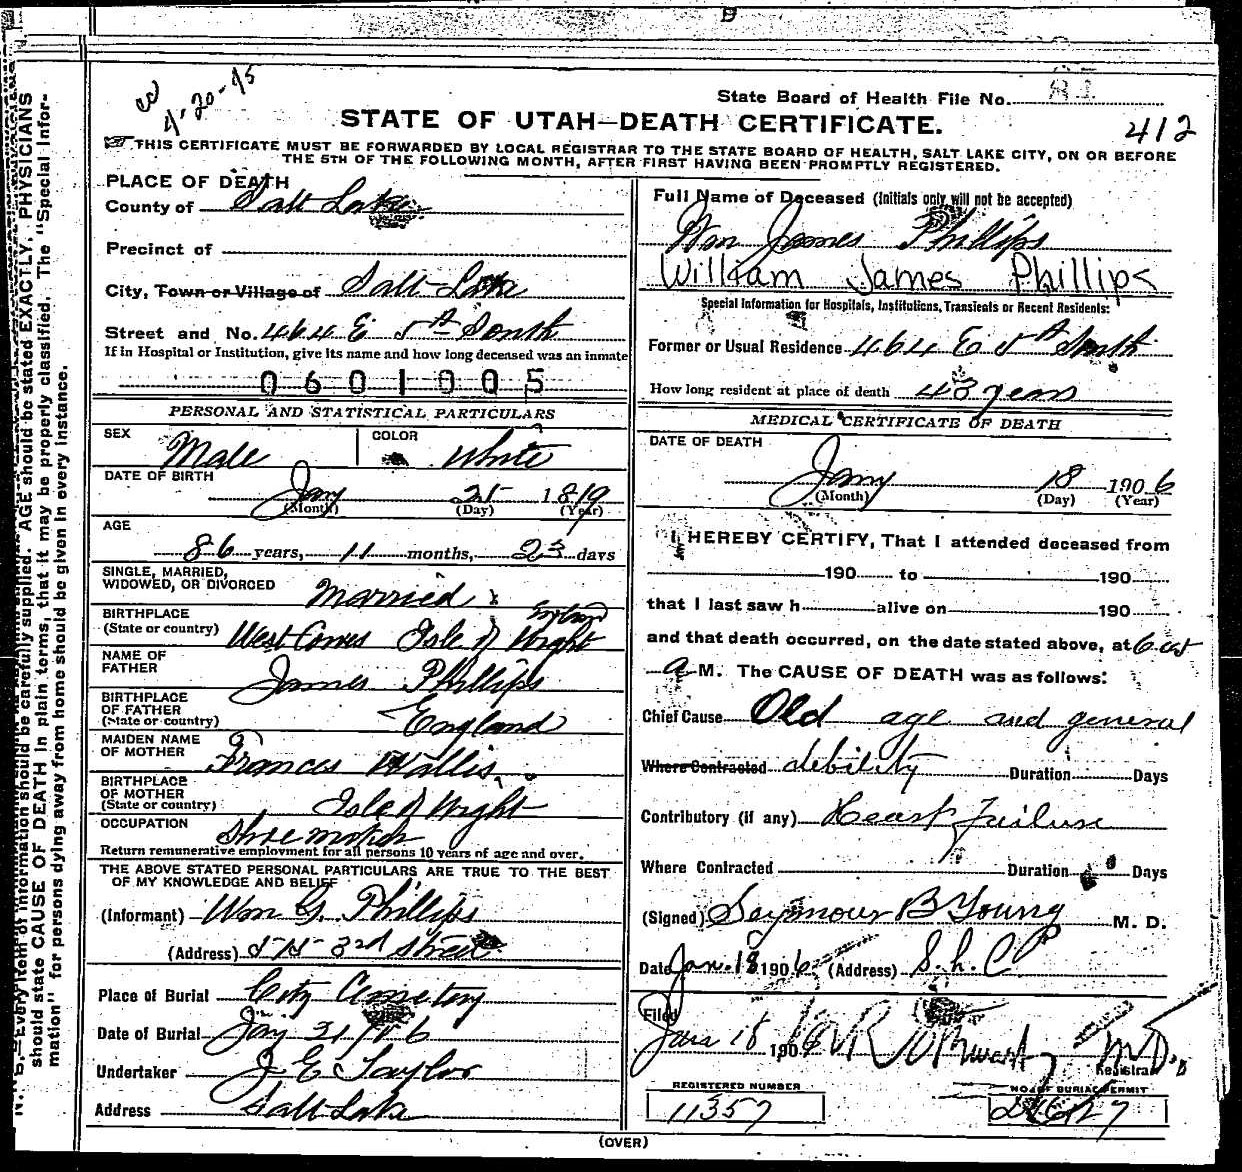 4-20-95
State Board of Health File No. 81
STATE OF UTAH—DEATH CERTIFICATE.
412
THIS CERTIFICATE MUST BE FORWARDED BY LOCAL REGISTRAR TO THE STATE BOARD OF HEALTH, SALT LAKE CITY, ON OR BEFORE
THE 5TH OF THE FOLLOWING MONTH, AFTER FIRST HAVING BEEN PROMPTLY REGISTERED.
PLACE OF DEATH
County of Salt Lake
Precinct of
City, Town or Village of Salt Lake
Street and No. 464 E 5th South
If in Hospital or Institution, give its name and how long deceased was an inmate
0601005
PERSONAL AND STATISTICAL PARTICULARS
SEX Male COLOR White
DATE OF BIRTH Jany 25 1819
(Month) (Day) (Year)
AGE
86 years, 11 months, 23 days
SINGLE, MARRIED,
WIDOWED, OR DIVORCED Married
BIRTHPLACE England
(State or country) West Cowes Isle of Wight
NAME OF
FATHER James Phillips
BIRTHPLACE
OF FATHER
(State or country) England
MAIDEN NAME
OF MOTHER Frances Wallis
BIRTHPLACE
OF MOTHER
(State or country) Isle of Wight
OCCUPATION Shoe maker
Return remunerative employment for all persons 10 years of age and over.
THE ABOVE STATED PERSONAL PARTICULARS ARE TRUE TO THE BEST
OF MY KNOWLEDGE AND BELIEF
(Informant) Wm G. Phillips
(Address) 3rd Street
Place of Burial City Cemetery
Date of Burial Jany 21 1906
Undertaker J E Taylor
Address Salt Lake
Full Name of Deceased (Initials only will not be accepted)
Wm James Phillips
William James Phillips
Special Information for Hospitals, Institutions, Transients or Recent Residents:
Former or Usual Residence 464 E 5th South
How long resident at place of death 43 years
MEDICAL CERTIFICATE OF DEATH
DATE OF DEATH
Jany 18 1906
(Month) (Day) (Year)
I HEREBY CERTIFY, That I attended deceased from
190 to 190
that I last saw h alive on 190
and that death occurred, on the date stated above, at 6.
a M. The CAUSE OF DEATH was as follows:
Chief Cause Old age and general
Where Contracted debility Duration Days
Contributory (if any) Heart Failure
Where Contracted Duration Days
(Signed) Seymour B Young M. D.
Date Jan. 18 1906 (Address) S. L. C
Filed
Jan 18 1906 M D.
Registrar
REGISTERED NUMBER
11357
NO. OF BURIAL PERMIT
(OVER)
N. B.—Every item of information should be carefully supplied. AGE should be stated EXACTLY. PHYSICIANS
should state CAUSE OF DEATH in plain terms, that it may be properly classified. The "Special Infor-
mation" for persons dying away from home should be given in every instance.